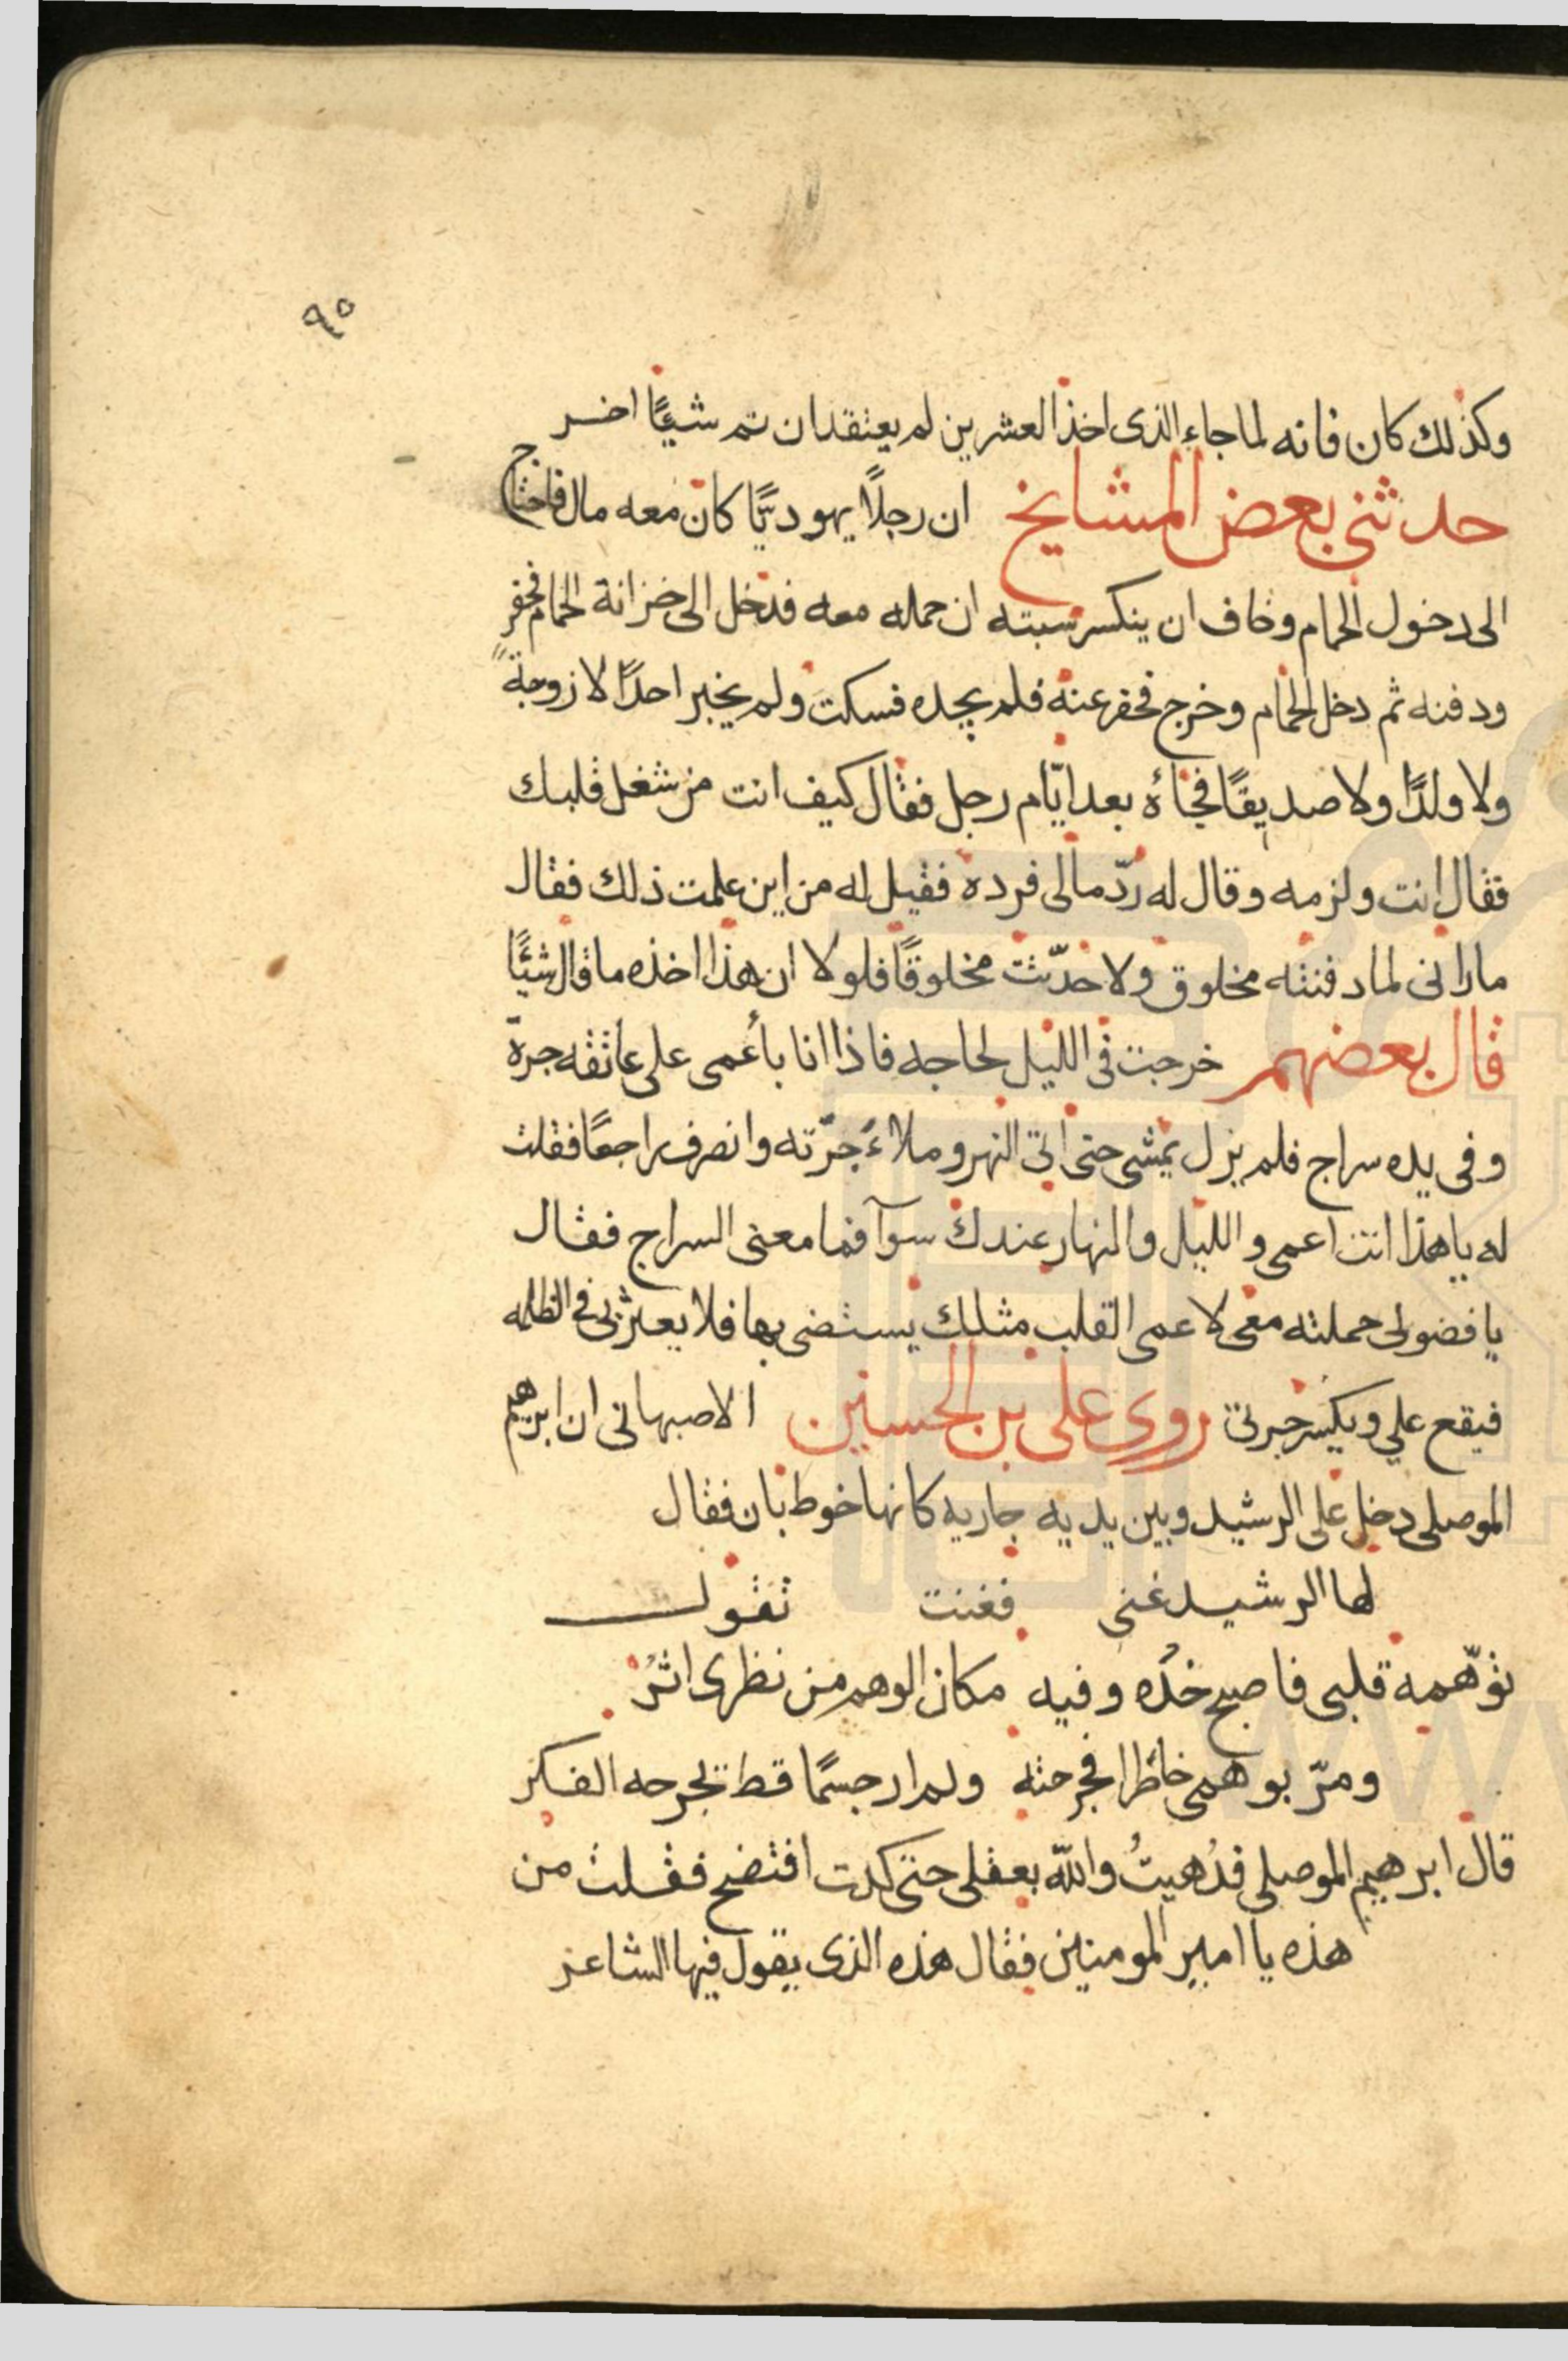 ٩٥
وكذلك كان فانه لما جاء الذى اخذ العشرين لم يعتقد ان تم شيًا اخر
حدثنى بعض المشايخ ان رجلًا يهوديًّا كان معه مال فاحتاج
الى دخول الحمام وخاف ان ينكسر سبته ان حمله معه فدخل الى خزانة الحمام فحفر
ودفنه ثم دخل الحمام وخرج فحفر عنه فلم يجده فسكت ولم يخبر احدًا لا زوجةً
ولا ولدًا ولا صديقًا فجاءه بعد ايّام رجل فقال كيف انت من شغل قلبك
فقال انت ولزمه وقال له ردّ مالى فرده فقيل له من اين علمت ذلك فقال
ما رانى لما دفنته مخلوق ولا حدّثت مخلوقًا فلولا ان هذا اخذه ما قال شيًا
قال بعضهم خرجت فى الليل لحاجه فاذا انا بأعمى على عاتقه جرة
وفى يده سراج فلم يزل يمشى حتى اتى النهر وملاءَ جرّته وانصرف راجعًا فقلت
له يا هذا انت اعمى والليل والنهار عندك سوآ فما معنى السراج فقال
يا فضولى حملته معى لاعمى القلب مثلك يستضى بها فلا يعثر بى فى الظلمه
فيقع علي ويكسر جرتى روى على بن الحسين الاصبهانى ان ابرهيم
الموصلى دخل على الرشيد وبين يديه جاريه كانها خوط بان فقال
لها الرشيد غنى فغنت تقول
توّهمه قلبى فاصبح خدّه وفيه مكان الوهم من نظرى اثرُ
ومرّ بوهمى خاطرا فجرحته ولم ار جسمًا قط تجرحه الفكر
قال ابرهيم الموصلى فذُهيتُ والله بعقلى حتى كدت افتضح فقلت من
هذه يا امير المومنين فقال هذه الذى يقول فيها الشاعر